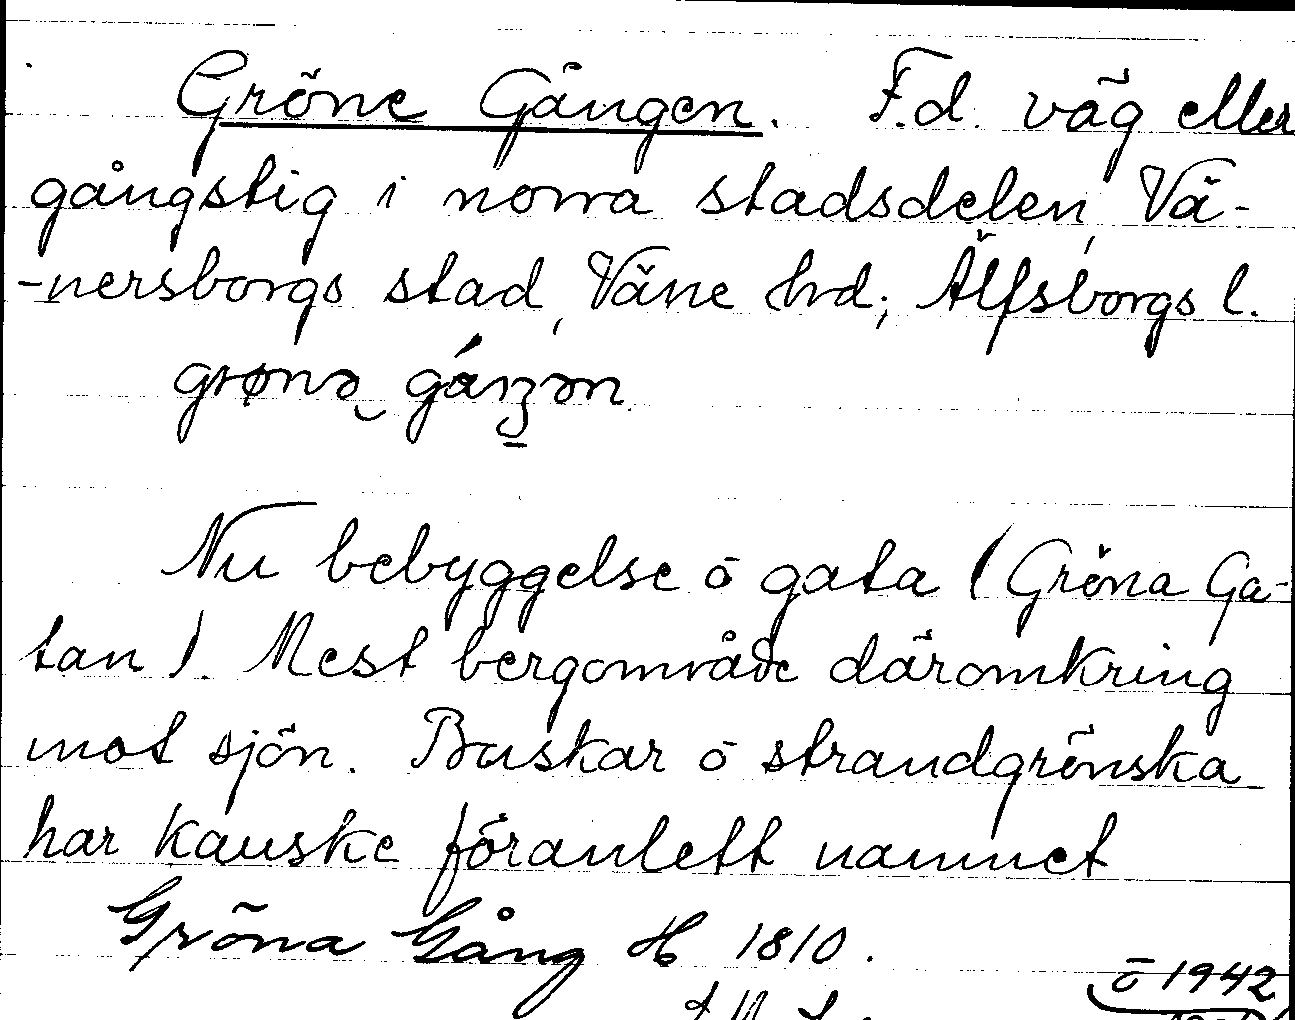 Gröne Gången. F.d. väg eller
gångstig i norra stadsdelen, Vä-
-nersborgs stad, Väne hrd; Älfsborgs l.
grønə gáŋən
Nu bebyggelse o gata (Gröna Ga-
tan). Mest bergområde däromkring
mot sjön. Buskar o strandgrönska
har kanske föranlett namnet
Gröna Gång H 1810.
ö 1942